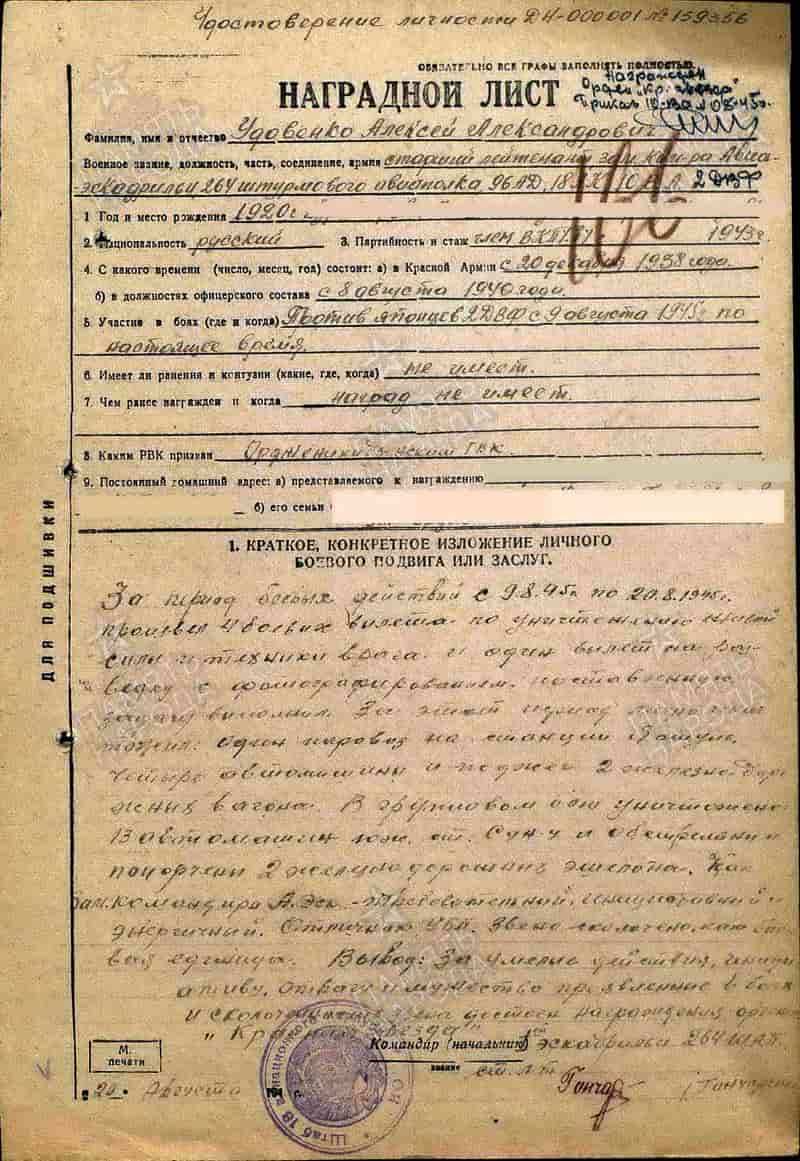 Удостоверение личности ДН-000001 № 159356
ОБЯЗАТЕЛЬНО ВСЕ ГРАФЫ ЗАПОЛНЯТЬ ПОЛНОСТЬЮ.
Награжден
НАГРАДНОЙ ЛИСТ
Орден "Кр. Звезда"
Приказ
Фамилия, имя и отчество Удовенко Алексей Александрович
Военное звание, должность, часть, соединение, армия старший лейтенант зам. ком-ра Авиа-
эскадрильи 264 штурмового авиаполка 96 АД, 10 2 ДВФ
1 Год и место рождения 1920г
2. Национальность русский 3. Партийность и стаж член ВКП 1943г.
4. С какого времени (число, месяц, год) состоит: а) в Красной Армии с 20 декабря 1938 года.
б) в должностях офицерского состава с 8 августа 1940 года.
5 Участие в боях (где и когда) Против японцев 2ДВФ с 9 августа 1945г по
настоящее время.
6. Имеет ли ранения и контузии (какие, где, когда) не имеет.
7. Чем ранее награжден и когда наград не имеет.
8. Каким РВК призван Орджоникидзевским ГВК
9. Постоянный домашний адрес: а) представляемого к награждению
б) его семьи
ДЛЯ ПОДШИВКИ
1. КРАТКОЕ, КОНКРЕТНОЕ ИЗЛОЖЕНИЕ ЛИЧНОГО
БОЕВОГО ПОДВИГА ИЛИ ЗАСЛУГ.
За период боевых действий с 9.8.45г. по 20.8.1945г.
произвел 4 боевых вылета по уничтожению живой
силы и техники врага и один вылет на раз-
ведку с фотографированием. поставленную
задачу выполнил. За этот период лично унич-
тожил: один паровоз на станции
четыре автомашины и поджег 2 железнодоро-
жных вагона. В групповом бою уничтожено
13 автомашин юж. ст. Сун-у и обстреляны и
попорчены 2 железнодорожных эшелона. Как
зам. командира А.Эск. - требовательный, инициативный и
энергичный. Отличная УБП. Звено сколочено, как бое-
вая единица. Вывод: За умелые действия, иници-
ативу, отвагу и мужество проявленные в боях
и сколачивание звена достоин награждения орденом
"Красная звезда"
Командир (начальник) эскадрильи 264 ШАП.
М.
печати
звание ст. л-т Гончар
"20" Августа 194 г.
Штаб 18